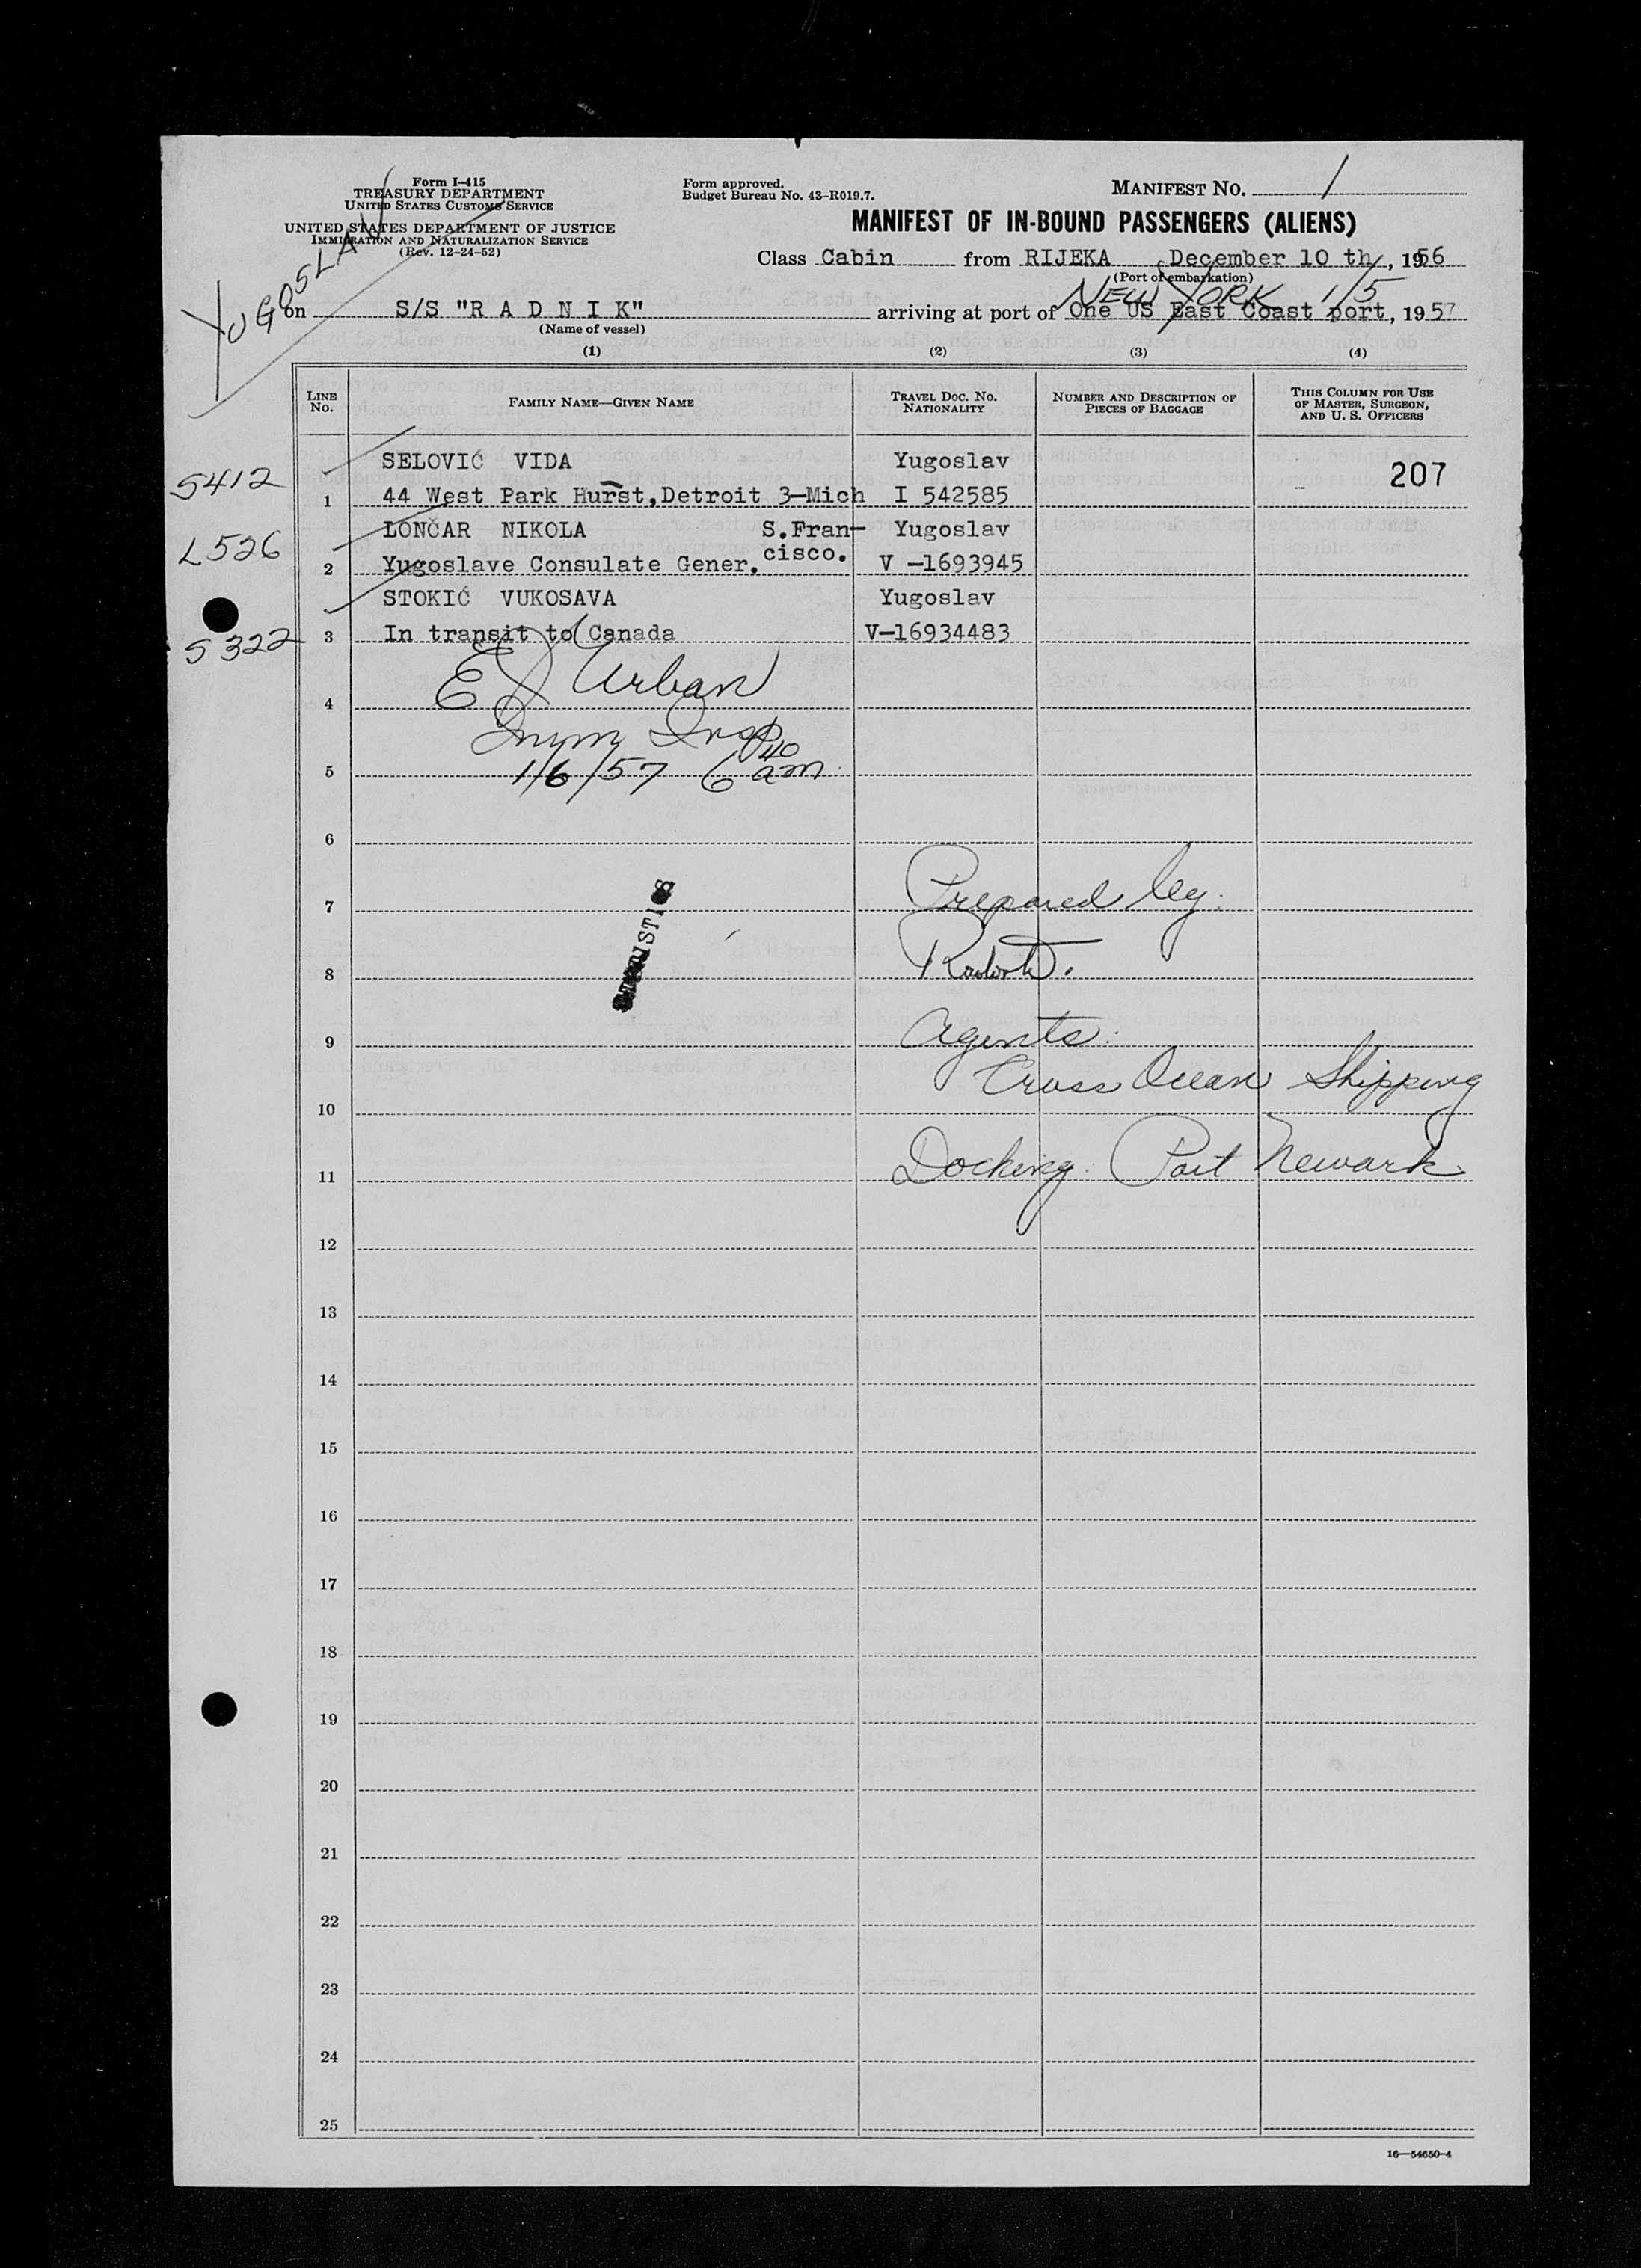 Form I-415
TREASURY DEPARTMENT
UNITED STATES CUSTOMS SERVICE
UNITED STATES DEPARTMENT OF JUSTICE
IMMIGRATION AND NATURALIZATION SERVICE
(Rev. 12-24-52)
YUGOSLAV
Form approved.
Budget Bureau No. 43-R019.7.
MANIFEST NO. 1
MANIFEST OF IN-BOUND PASSENGERS (ALIENS)
Class Cabin from RIJEKA December 10 th, 1956
(Port of embarkation)
NEW YORK 1/5
on S/S "R A D N I K" arriving at port of One US East Coast port, 1957
(Name of vessel)
(1) (2) (3) (4)
LINE NO. FAMILY NAME—GIVEN NAME TRAVEL DOC. NO. NATIONALITY NUMBER AND DESCRIPTION OF PIECES OF BAGGAGE THIS COLUMN FOR USE OF MASTER, SURGEON, AND U. S. OFFICERS
SELOVIĆ VIDA Yugoslav 207
5412 1 44 West Park Hurst,Detroit 3-Mich I 542585
LONČAR NIKOLA S.Fran- Yugoslav
L526 2 Yugoslave Consulate Gener. cisco. V -1693945
STOKIĆ VUKOSAVA Yugoslav
5322 3 In transit to Canada V-16934483
E J Urban
4
Imm Insp
5 1/6/57 6 40 am
6
7 Prepared by:
8
9 Agents:
Cross Ocean Shipping
10
11 Docking: Port Newark
12
13
14
15
16
17
18
19
20
21
22
23
24
25
16—54650-4